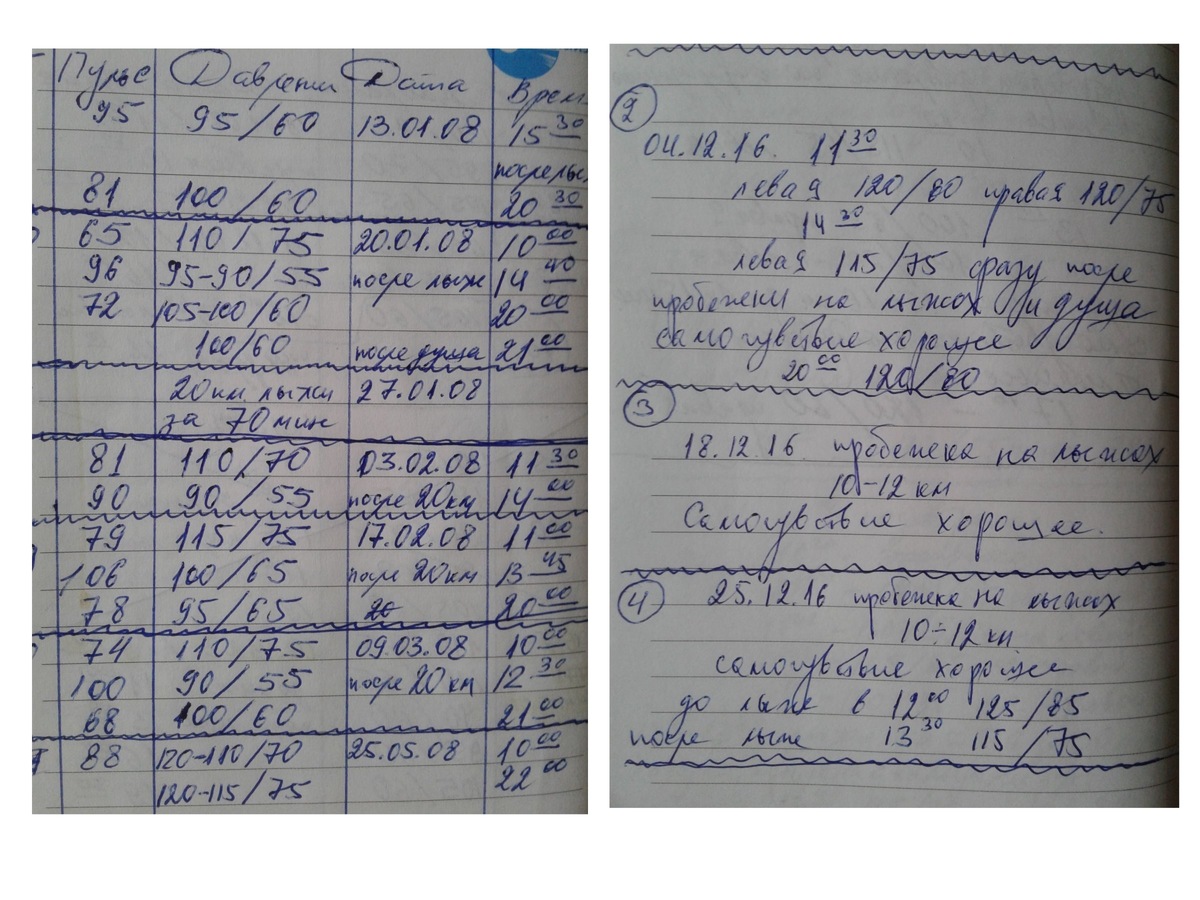 Пульс Давлени Дата Врем
95 95/60 13.01.08 15 30
после лы
81 100/60 20 30
65 110/75 20.01.08 10 00
96 95-90/55 после лыж 14 40
72 105-100/60 20 00
100/60 после душа 21 00
20км лыжи 27.01.08
за 70 мин
81 110/70 03.02.08 11 30
90 90/55 после 20км 14 00
79 115/75 17.02.08 11 00
106 100/65 после 20км 13 45
78 95/65 20 00
74 110/75 09.03.08 10 00
100 90/55 после 20км 12 30
68 100/60 21 00
88 120-110/70 25.05.08 10 00
120-115/75 22 00
2
04.12.16. 11 30
левая 120/80 правая 120/75
14 30
левая 115/75 сразу после
пробежки на лыжах и душа
самочувствие хорошее
20 00 120/80
3
18.12.16 пробежка на лыжах
10-12 км
Самочувствие хорошее.
4 25.12.16 пробежка на лыжах
10÷12 км
самочувствие хорошее
до лыж в 12 00 125/85
после лыж 13 30 115/75